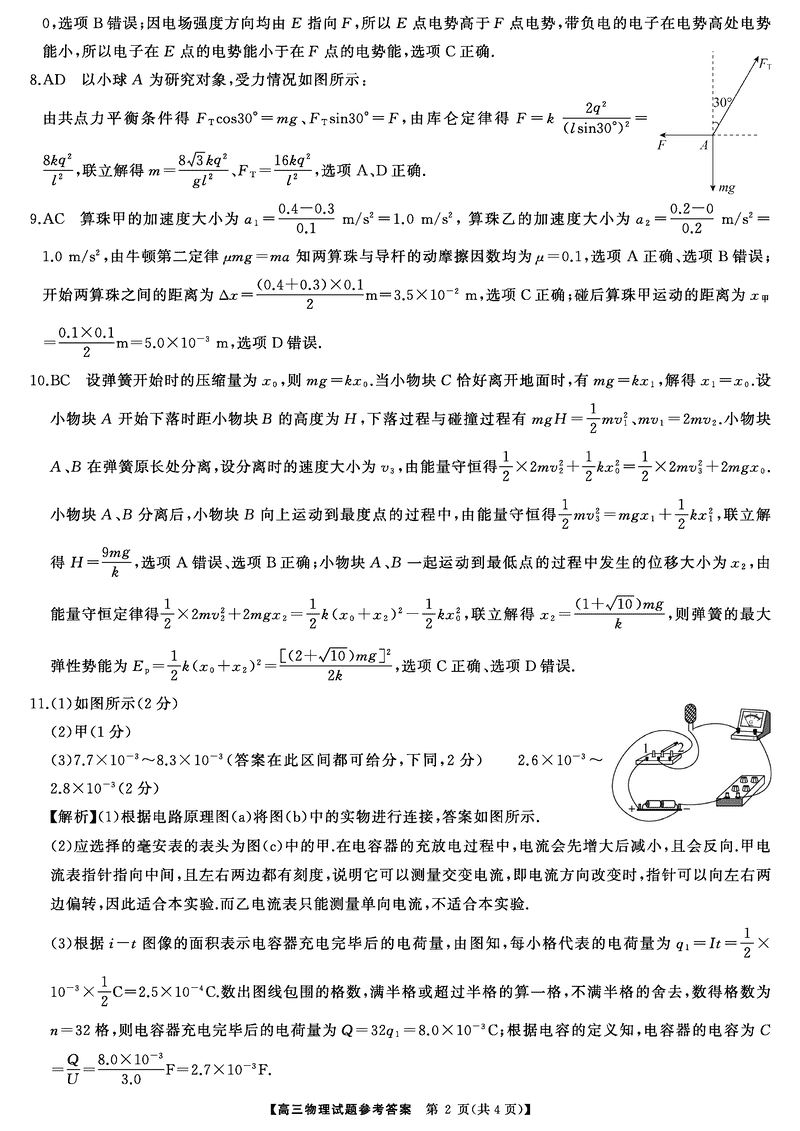 0,选项B错误;因电场强度方向均由E指向F,所以E点电势高于F点电势,带负电的电子在电势高处电势
能小,所以电子在E点的电势能小于在F点的电势能,选项C正确.
8.AD 以小球A为研究对象,受力情况如图所示:
由共点力平衡条件得 F_T cos30°=mg、F_T sin30°=F,由库仑定律得 F=k 2q²/(lsin30°)² =
8kq²/l²,联立解得 m=8√3kq²/gl²、F_T=16kq²/l²,选项A、D正确.
F_T
30°
F
A
mg
9.AC 算珠甲的加速度大小为 a₁=(0.4−0.3)/0.1 m/s²=1.0 m/s²,算珠乙的加速度大小为 a₂=(0.2−0)/0.2 m/s²=
1.0 m/s²,由牛顿第二定律 μmg=ma 知两算珠与导杆的动摩擦因数均为 μ=0.1,选项A正确、选项B错误;
开始两算珠之间的距离为 Δx=(0.4+0.3)×0.1/2 m=3.5×10⁻² m,选项C正确;碰后算珠甲运动的距离为 x甲
=0.1×0.1/2 m=5.0×10⁻³ m,选项D错误.
10.BC 设弹簧开始时的压缩量为 x₀,则 mg=kx₀.当小物块C恰好离开地面时,有 mg=kx₁,解得 x₁=x₀.设
小物块A开始下落时距小物块B的高度为H,下落过程与碰撞过程有 mgH=1/2 mv₁²、mv₁=2mv₂.小物块
A、B在弹簧原长处分离,设分离时的速度大小为 v₃,由能量守恒得 1/2×2mv₂²+1/2 kx₀²=1/2×2mv₃²+2mgx₀.
小物块A、B分离后,小物块B向上运动到最度点的过程中,由能量守恒得 1/2 mv₃²=mgx₁+1/2 kx₁²,联立解
得 H=9mg/k,选项A错误、选项B正确;小物块A、B一起运动到最低点的过程中发生的位移大小为 x₂,由
能量守恒定律得 1/2×2mv₂²+2mgx₂=1/2 k(x₀+x₂)²−1/2 kx₀²,联立解得 x₂=(1+√10)mg/k,则弹簧的最大
弹性势能为 Eₚ=1/2 k(x₀+x₂)²=[(2+√10)mg]²/2k,选项C正确、选项D错误.
11.(1)如图所示(2分)
(2)甲(1分)
(3)7.7×10⁻³~8.3×10⁻³(答案在此区间都可给分,下同,2分) 2.6×10⁻³~
2.8×10⁻³(2分)
1 2
G
+ −
【解析】(1)根据电路原理图(a)将图(b)中的实物进行连接,答案如图所示.
(2)应选择的毫安表的表头为图(c)中的甲.在电容器的充放电过程中,电流会先增大后减小,且会反向.甲电
流表指针指向中间,且左右两边都有刻度,说明它可以测量交变电流,即电流方向改变时,指针可以向左右两
边偏转,因此适合本实验.而乙电流表只能测量单向电流,不适合本实验.
(3)根据 i−t 图像的面积表示电容器充电完毕后的电荷量,由图知,每小格代表的电荷量为 q₁=It=1/2×
10⁻³×1/2 C=2.5×10⁻⁴C.数出图线包围的格数,满半格或超过半格的算一格,不满半格的舍去,数得格数为
n=32格,则电容器充电完毕后的电荷量为 Q=32q₁=8.0×10⁻³C;根据电容的定义知,电容器的电容为 C
=Q/U=8.0×10⁻³/3.0 F=2.7×10⁻³F.
【高三物理试题参考答案 第2页(共4页)】